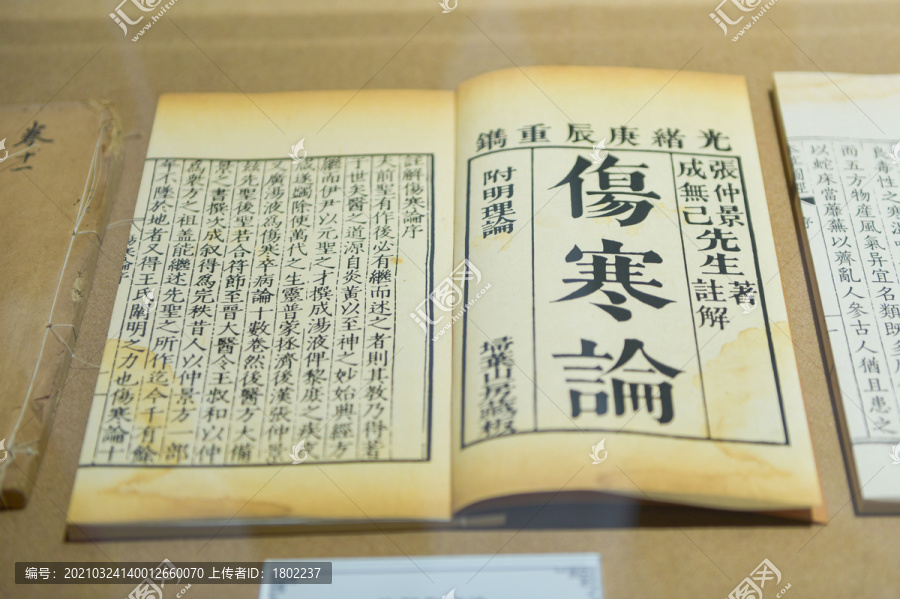 卷十一
光緒庚辰重鐫
張仲景先生著
成無己註解
傷寒論
附明理論
埽葉山房藏板
註解傷寒論序
夫前聖有作後必有繼而述之者則其教乃得著
于世矣醫之道源自炎黃以至神之妙始興經方
繼而伊尹以元聖之才撰成湯液俾黎庶之疾疢
咸遂蠲除使萬代之生靈普蒙拯濟後漢張仲景
又廣湯液為傷寒卒病論十數卷然後醫方大備
茲先聖後聖若合符節至晉大醫令王叔和以仲
景之書撰次成叙得為完秩昔人以仲景方一部
為衆方之祖蓋能繼述先聖之所作迄今千有餘
年不墜於地者又得王氏闡明之力也傷寒論十
良毒性之寒溫
而五方物產風氣異宜名類既
以蛇床當蘼蕪以薺亂人參古人猶且患之
序
编号:20210324140012660070 上传者ID:1802237